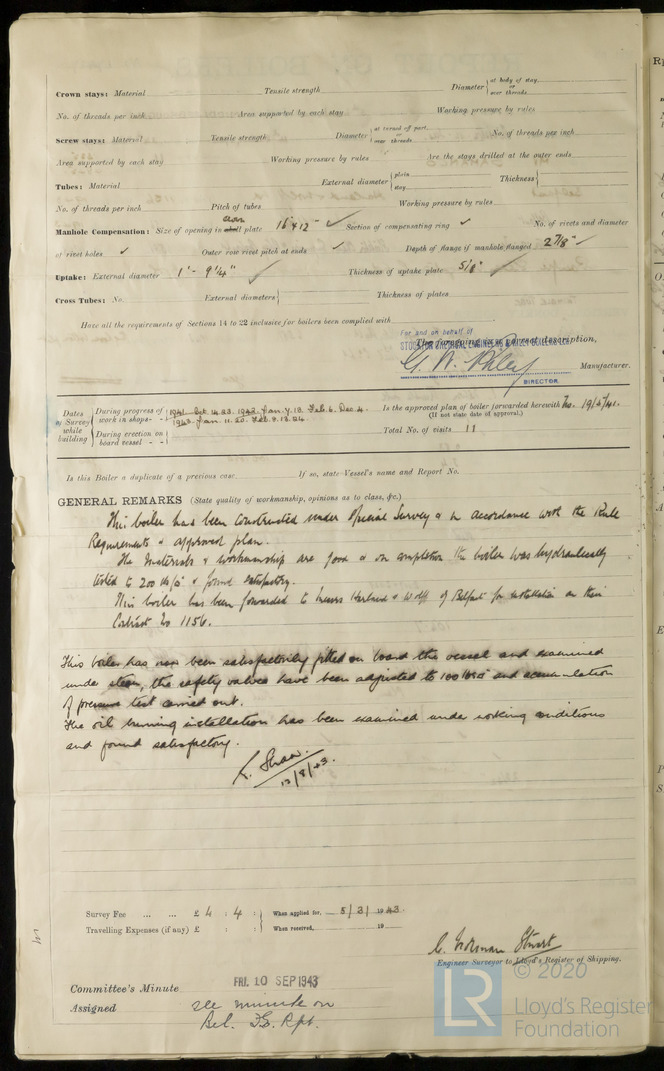 Crown stays: Material Tensile strength Diameter { at body of stay or over threads
No. of threads per inch Area supported by each stay Working pressure by rules
Screw stays: Material Tensile strength Diameter { at turned off part, or over threads No. of threads per inch
Area supported by each stay Working pressure by rules Are the stays drilled at the outer ends
Tubes: Material External diameter { plain stay Thickness {
No. of threads per inch Pitch of tubes Working pressure by rules
Manhole Compensation: Size of opening in shell plate 16" x 12" ✓ Section of compensating ring ✓ No. of rivets and diameter
of rivet holes ✓ Outer row rivet pitch at ends ✓ Depth of flange if manhole flanged 2 7/8" ✓
Uptake: External diameter 1' - 9 1/4" ✓ Thickness of uptake plate 5/8" ✓
Cross Tubes: No. External diameters { Thickness of plates
Have all the requirements of Sections 14 to 22 inclusive for boilers been complied with
For and on behalf of
The foregoing is a correct description,
Manufacturer.
DIRECTOR.
Dates of Survey while building { During progress of work in shops - - 1941. Oct 14. 23. 1942. Jan. 7. 13. Feb. 6. Dec. 4. 1943. Jan. 11. 20. Feb. 9. 13. 24 Is the approved plan of boiler forwarded herewith No. 19/5/41.
(If not state date of approval.)
During erection on board vessel - - - Total No. of visits 11
Is this Boiler a duplicate of a previous case If so, state Vessel's name and Report No.
GENERAL REMARKS (State quality of workmanship, opinions as to class, &c.)
This boiler has been constructed under Special Survey & in accordance with the Rule
Requirements & approved plan.
The Materials & workmanship are good & on completion the boiler was hydraulically
tested to 200 lb/□" & found satisfactory.
This boiler has been forwarded to Messrs Harland & Wolff of Belfast for installation on their
Contract No 1156.
This boiler has now been satisfactorily fitted on board the vessel and examined
under steam, the safety valves have been adjusted to 100 lbs □" and accumulation
of pressure test carried out.
The oil burning installation has been examined under working conditions
and found satisfactory.
12/8/43.
Survey Fee ... ... £ 4 : 4 : } When applied for, 5/3/1943
Travelling Expenses (if any) £ : : } When received, 19
C. Norman Stuart
Engineer Surveyor to Lloyd's Register of Shipping.
Committee's Minute FRI. 10 SEP 1943
Assigned see minute on
Bel. F.E. Rpt.
© 2020
LR
Lloyd's Register
Foundation